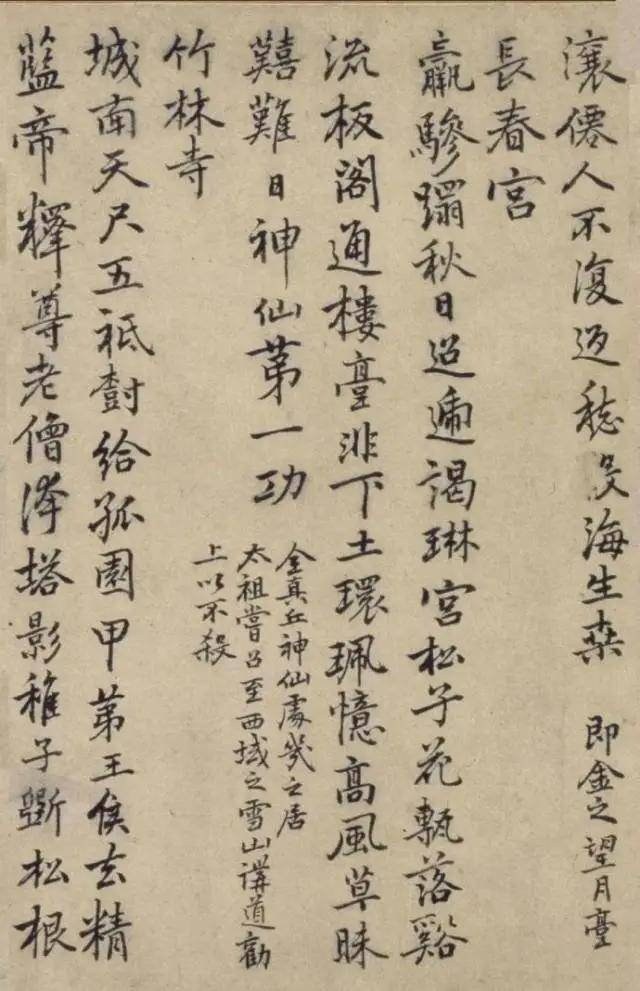 瀼僊人不復返海生桑 即金之望月臺
長春宮
羸驂躡秋日迢遞謁琳宮松子花甎落谿
流板閣通樓臺非下土環珮憶高風草昧
囏難日神仙第一功
全真丘神仙處幾之居
太祖嘗召至西域之雪山講道勸
上以不殺
竹林寺
城南天尺五祗樹給孤園甲第王侯去精
藍帝釋尊老僧塔影稚子斲松根